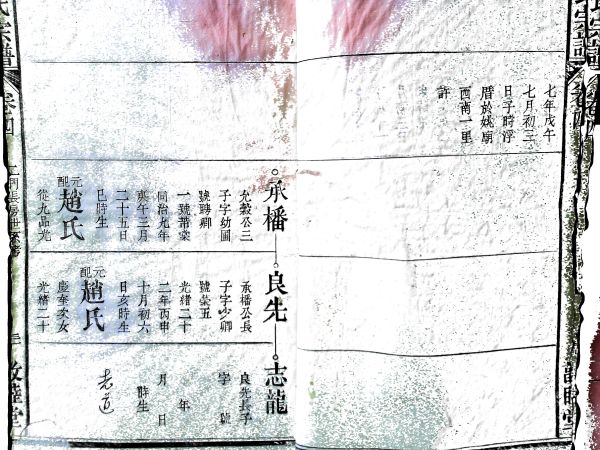 七年戊午
七月初三
日子時浮
厝於姚廟
西南一里
許
承橋
允穀公三
子字幼圃
號聘卿
一號蒂棠
同治九年
庚午三月
二十五日
巳時生
元配
趙氏
從九品光
良先
承橋公長
子字少卿
號棠五
光緒二十
二年丙申
十月初六
日亥時生
元配
趙氏
慶奎次女
光緒二十
志龍
良先長子
字 號
年
月 日
時生
志道
氏宗譜
卷之四
敦睦堂